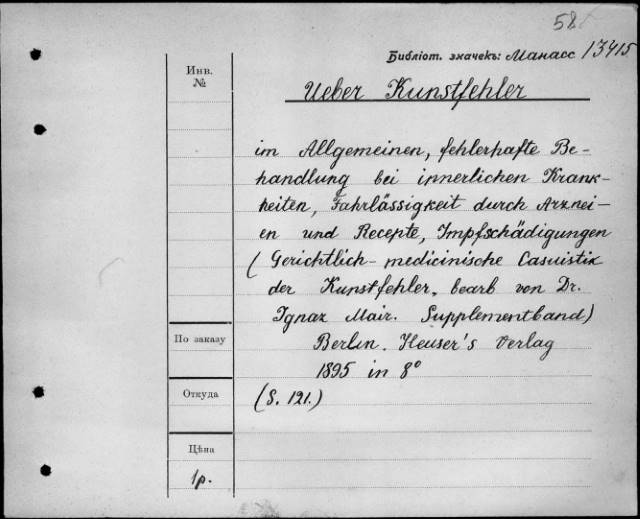 58
Библіот. значекъ: Манасс 13415
Инв.
№
Ueber Kunstfehler
im Allgemeinen, fehlerhafte Be-
handlung bei innerlichen Krank-
heiten, Fahrlässigkeit durch Arznei-
en und Recepte, Impfschädigungen
(Gerichtlich-medicinische Casuistik
der Kunstfehler. bearb von Dr.
Ignaz Mair. Supplementband)
Berlin. Heuser's Verlag
1895 in 8°
(S. 121.)
По заказу
Откуда
Цѣна
1р.